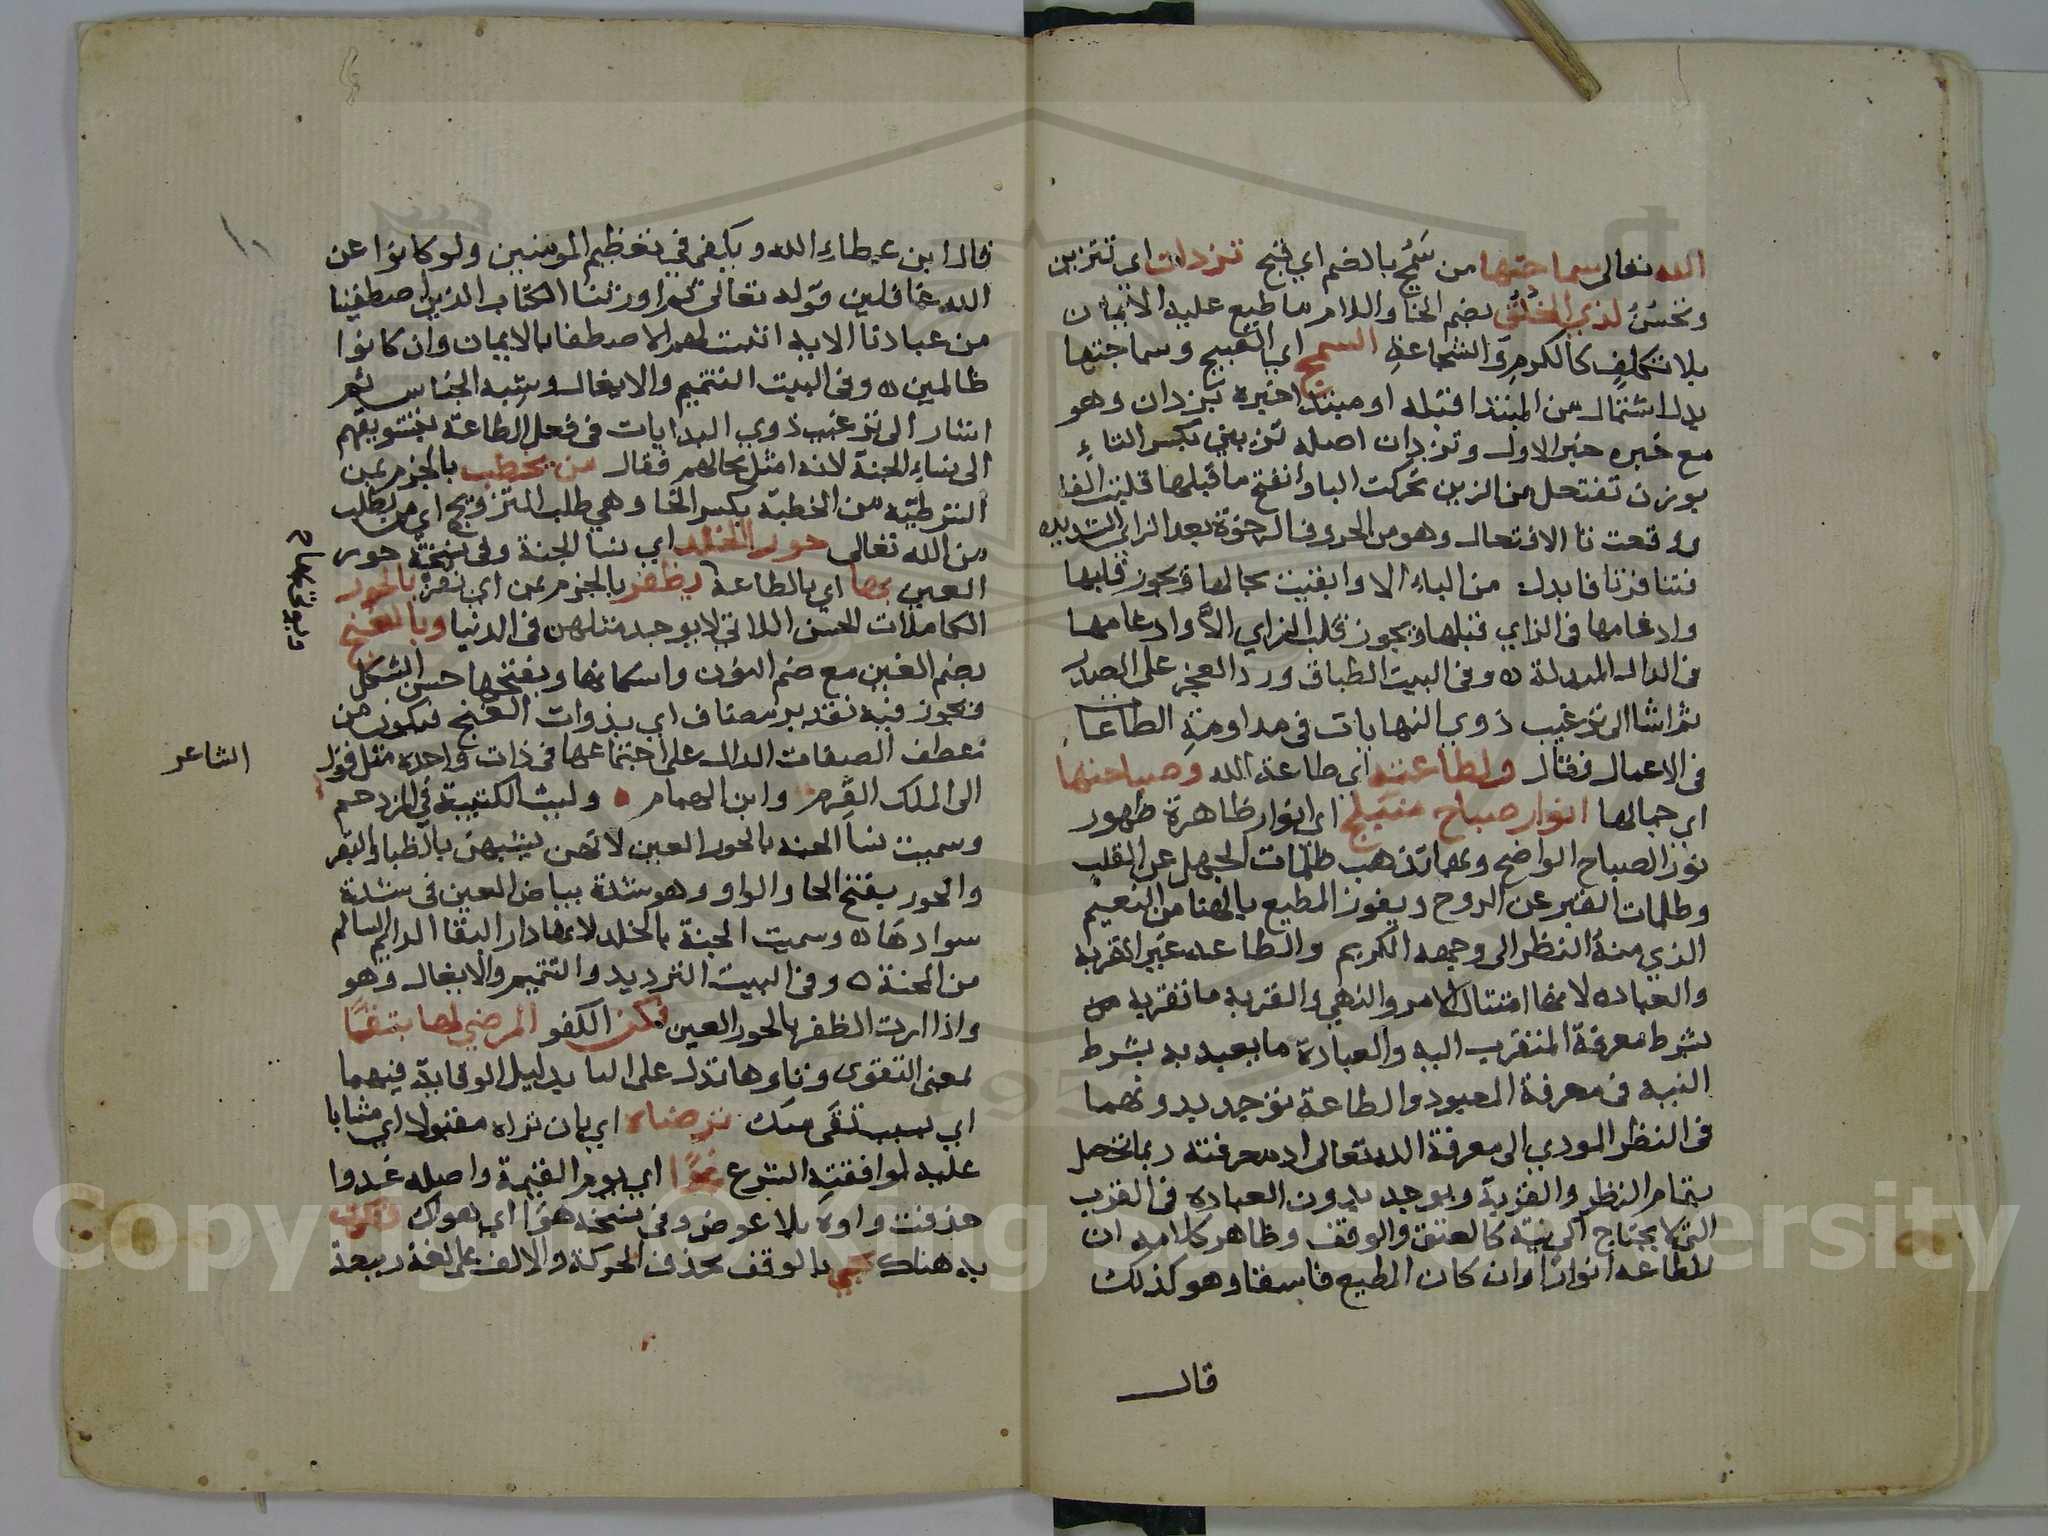 الله تعالى سماجتها من سَمُج بالضم اي قبح تزدان اي تتزين
وتحسُنُ لذي الخُلُق بضم الخا واللام ما طبع عليه الانسان
بلا تكلفٍ كالكرم والشجاعةِ السمج اي القبيح وسماجتها
بدل اشتمال من المبتدا قبله او مبتدا خبره تزدان وهو
مع خبره خبر الاول وتزدان اصله تزتين بكسر التاءِ
بوزن تفتعل من الزين تحركت اليا وانفتح ما قبلها قلبت الفا
ووقعت تا الافتعال وهو من الحروف الرخوة بعد الزاي الشديده
فتنافرتا فابدلت من التاء دالا وابقيت بحالها ويجوز قلبها
وادغامها في الزاي قبلها ويجوز قلب الزاي دالًا وادغامها
في الدال المبدلة ٥ وفي البيت الطباق ورد العجز على الصدر
ثم اشا الى ترغيب ذوي النهايات في مداومةِ الطاعات
في الاعمال فقال ولطاعته اي طاعة الله وصباحتها
اي جمالها انوار صباح منبلج اي انوار ظاهرة ظهور
نور الصباح الواضح وبها تذهب ظلمات الجهل عن القلب
وظلمات القبر عن الروح ويفوز المطيع بالهنا من النعيم
الذي منهُ النظر الى وجهه الكريم والطاعه غير القربه
والعباده لانها امتثال الامر والنهي والقربه ما تقرب به
بشرط معرفة المتقرب اليه والعبادة ما يعبد به بشرط
النيه في معرفة المعبود والطاعة توجد بدونهما
في النظر المودي الى معرفة الله تعالى اذ معرفته ربما تحصل
بتمام النظر والقربة ويوجد بدون العباده في القرب
التي لا يحتاج الى نية كالعتق والوقف وظاهر كلامه ان
للطاعه انوارًا وان كان المطيع فاسقا وهو كذلك
قال
قال ابن عطاء الله ويكفي في تعظيم المومنين ولو كانوا عن
الله غافلين قوله تعالى ثم اورثنا الكتاب الذين اصطفينا
من عبادنا الايه اثبت لهم الاصطفا بالايمان وان كانوا
ظالمين ٥ وفي البيت التتميم والايغال وشبه الجناس ثم
اشار الى ترغيب ذوي البدايات في فعل الطاعة بتشويقهم
الى نساءِ الجنة لانه امثل بحالهم فقال من يخطب بالجزم بمن
الشرطيّه من الخطبة بكسر الخا وهي طلب التزويج اي من يطلب
من الله تعالى حور الخلد اي نسا الجنة وفي نسخة حور
العين بها اي بالطاعة يظفر بالجزم بمن اي يفز بالحور
الكاملات الحسن اللاتي لا يوجد مثلهن في الدنيا وبالغنج
بضم الغين مع ضم النون واسكانها وبفتحها حسن الشكل
ويجوز فيه تقدير مضاف اي بذوات الغنج فيكون من
عطف الصفات الدال على اجتماعها في ذات واحده مثل قول
الشاعر
الى الملك القَرم وابن الهمام ٥ وليث الكتيبة في المزدحم
وسميت نسا الجنه بالحور العين لانهن يشبهن بالظبا والبقر
والحور بفتح الحا والواو وهو شدة بياض العين في شدة
سوادها ٥ وسميت الجنة بالخلد لانها دار البقا الدايم السالم
من المحنة ٥ وفي البيت الترديد والتتميم والايغال وهو
واذا اردت الظفر بالحور العين فكن الكفو المرضي لها بتقًا
لمعنى التقوى وتاوها تدل على اليا بدليل الوقاية فيهما
اي بسبب تقى منك ترضاه اي بان تراه مقبولا اي مثابا
عليه لموافقته الشرع غدًا اي يوم القيمة واصله غدوا
حذفت واوه بلا عوض وفي نسخه هوًا اي بهواك فتكون
به هناك نجي بالوقف بحذف الحركة والالف على لغة ربيعة
Copyright © King Saud University
1957